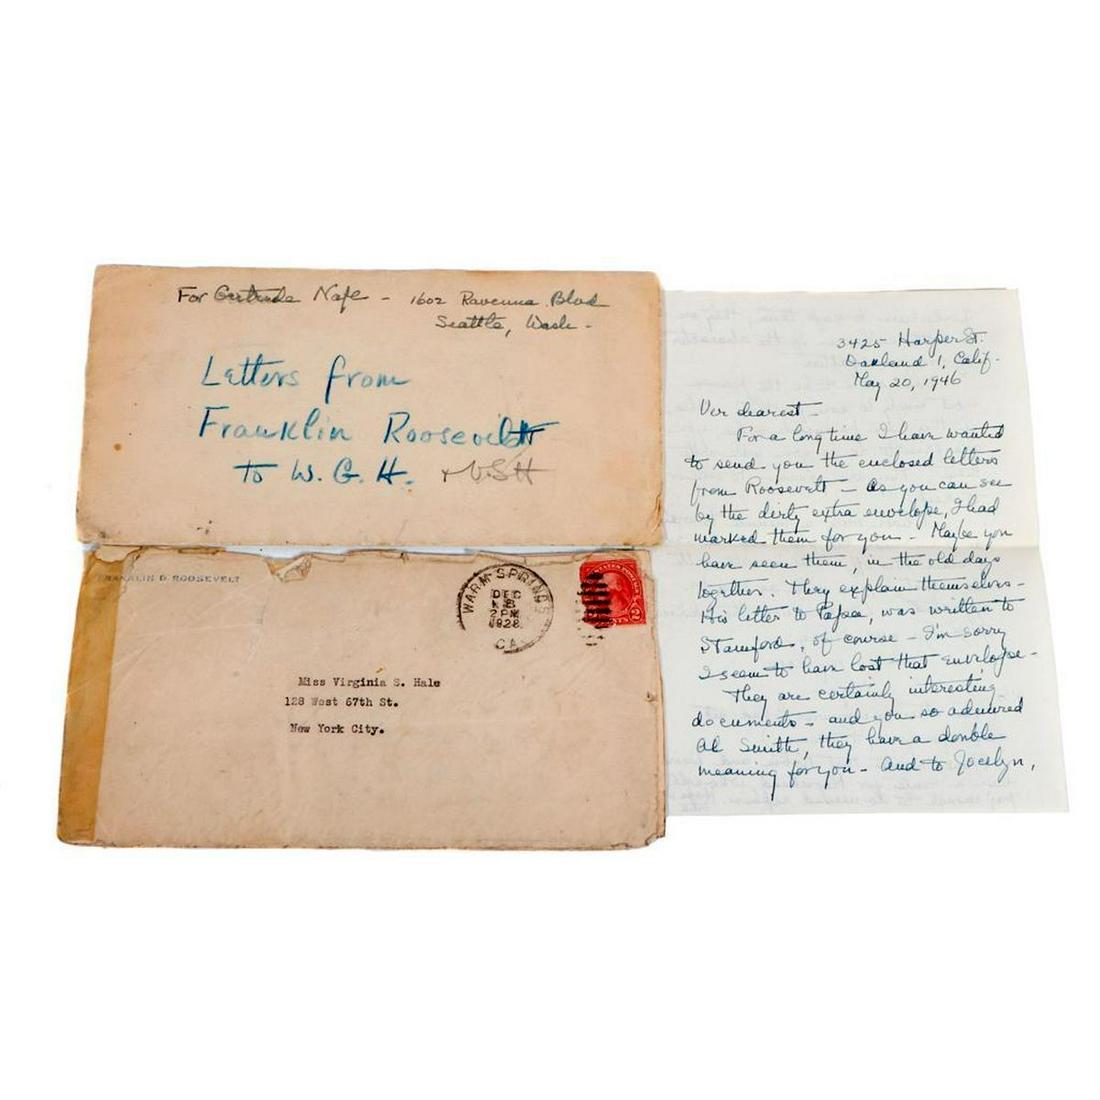 For Gertrude Nafe - 1602 Ravenna Blvd
Seattle, Wash -
Letters from
Franklin Roosevelt
to W. G. H. + VSH
FRANKLIN D. ROOSEVELT
WARM SPRINGS
DEC
2 PM
1928
GA
2
Miss Virginia S. Hale
128 West 67th St.
New York City.
3425 Harper St.
Oakland 1, Calif-
May 20, 1946
dearest -
For a long time I have wanted
to send you the enclosed letters
from Roosevelt - as you can see
by the dirty extra envelope, I had
marked them for you - Maybe you
have seen them, in the old days
together. They explain themselves -
His letter to Papa, was written to
Stamford, of course - I'm sorry
I seem to have lost that envelope -
They are certainly interesting
documents - and you so admired
Al Smith, they have a double
meaning for you - And to Jocelyn,